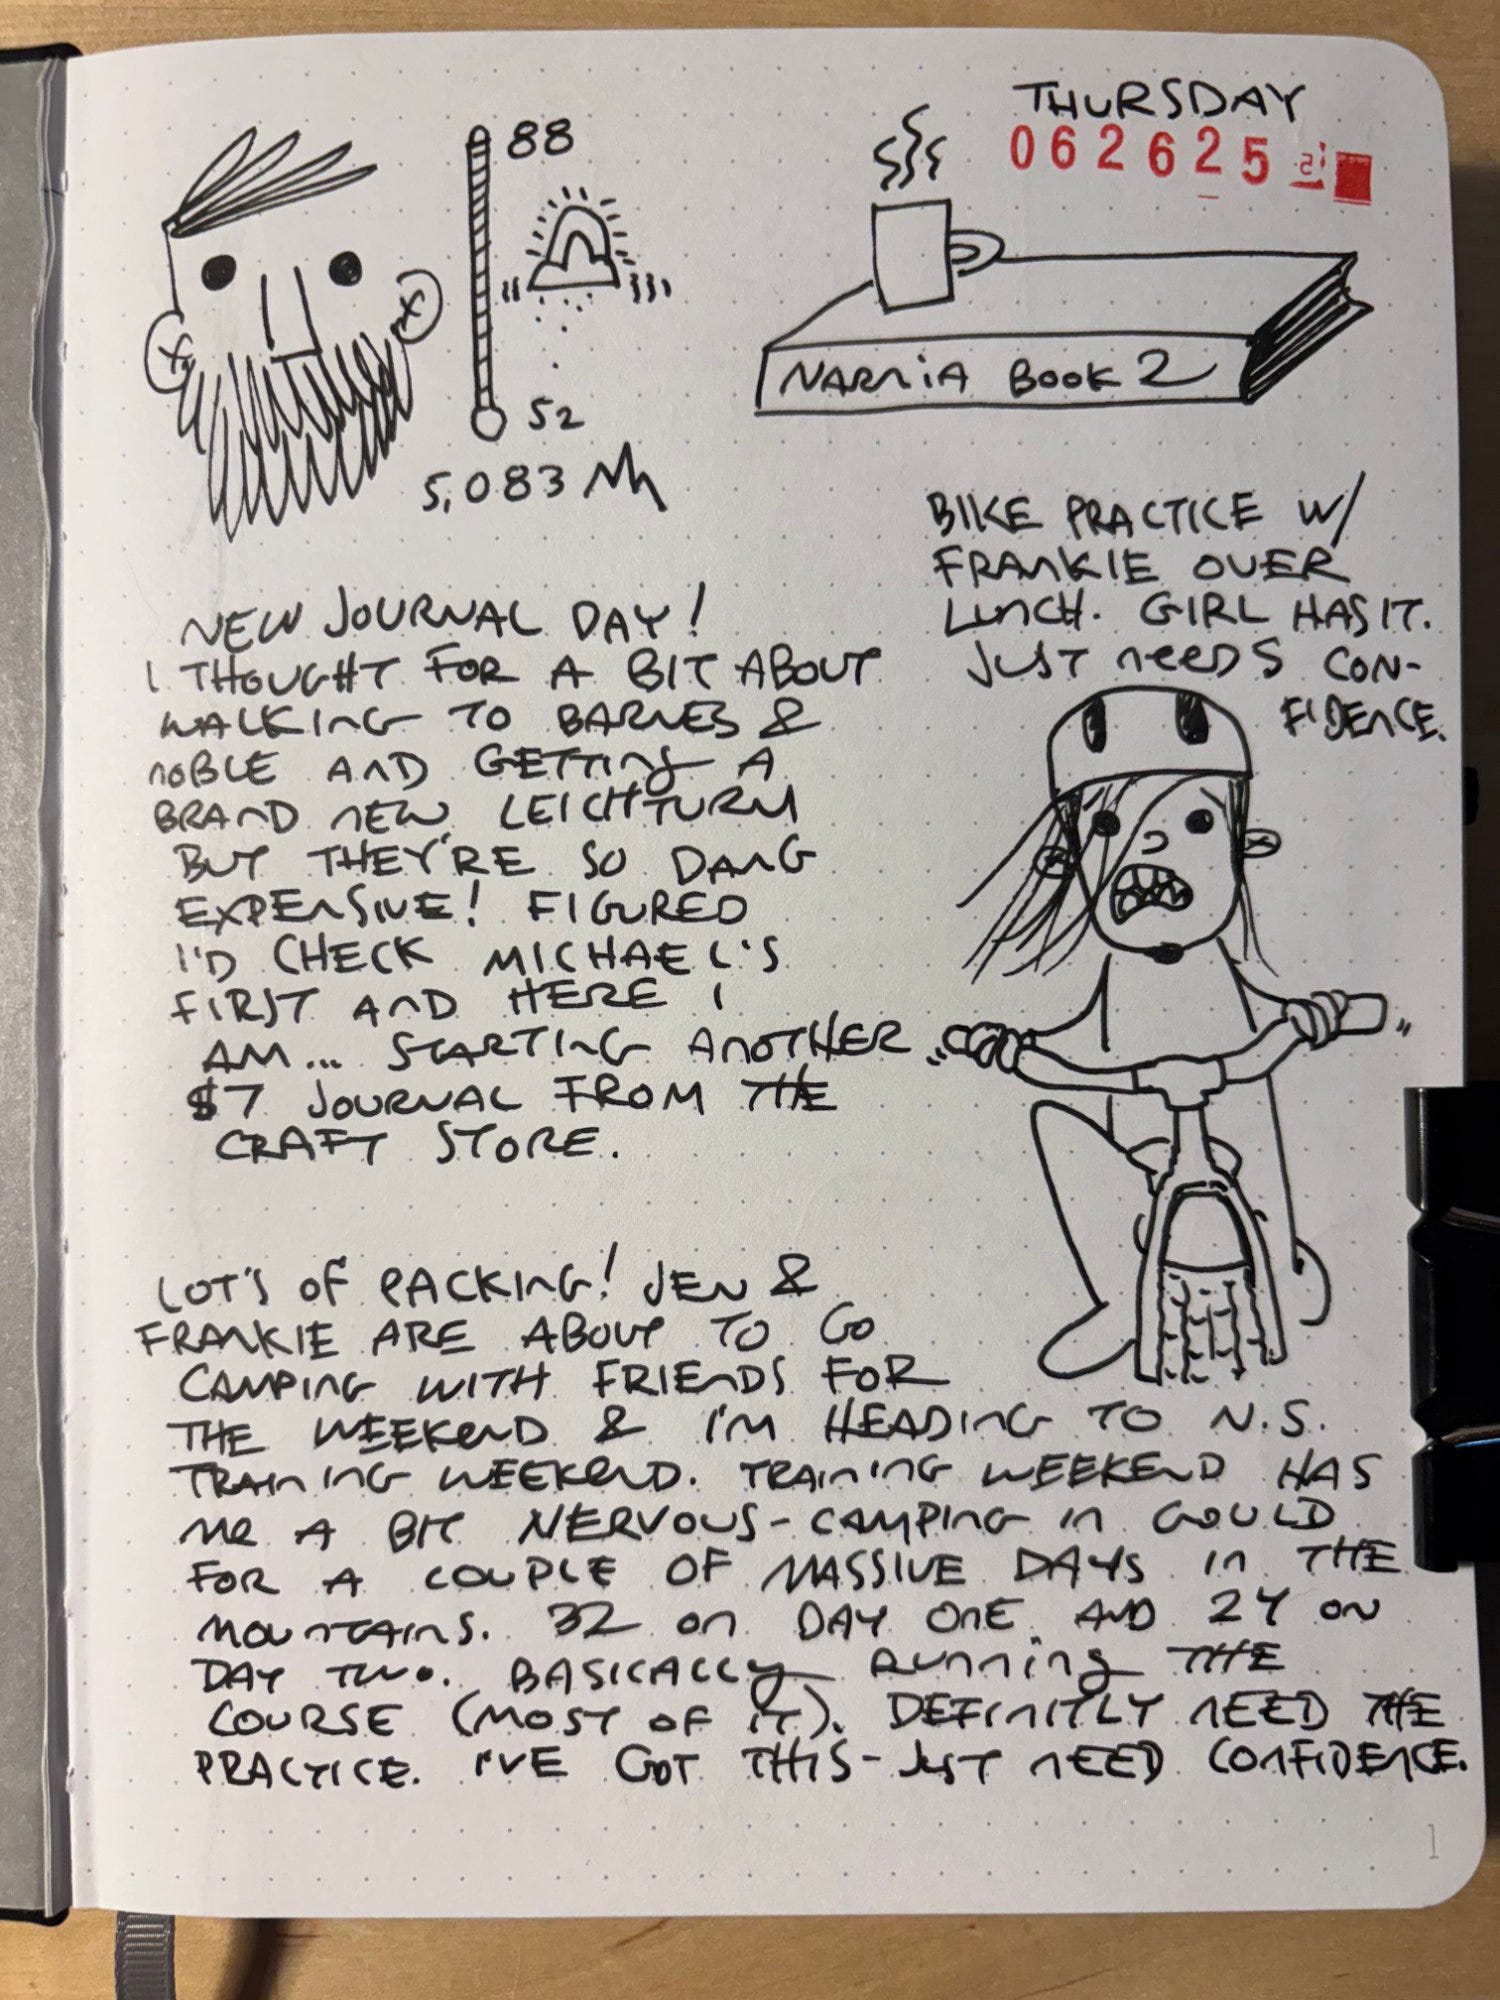 THURSDAY
062625
88
52
5,083
NARNIA BOOK 2
BIKE PRACTICE W/
FRANKIE OVER
LUNCH. GIRL HAS IT.
JUST NEEDS CON-
FIDENCE.
NEW JOURNAL DAY!
I THOUGHT FOR A BIT ABOUT
WALKING TO BARNES &
NOBLE AND GETTING A
BRAND NEW LEICHTURM
BUT THEY'RE SO DANG
EXPENSIVE! FIGURED
I'D CHECK MICHAEL'S
FIRST AND HERE I
AM... STARTING ANOTHER
$7 JOURNAL FROM THE
CRAFT STORE.
LOT'S OF PACKING! JEN &
FRANKIE ARE ABOUT TO GO
CAMPING WITH FRIENDS FOR
THE WEEKEND & I'M HEADING TO N.S.
TRAINING WEEKEND. TRAINING WEEKEND HAS
ME A BIT NERVOUS - CAMPING IN GOULD
FOR A COUPLE OF MASSIVE DAYS IN THE
MOUNTAINS. 32 ON DAY ONE AND 24 ON
DAY TWO. BASICALLY RUNNING THE
COURSE (MOST OF IT). DEFINITLY NEED THE
PRACTICE. I'VE GOT THIS - JUST NEED CONFIDENCE.
1